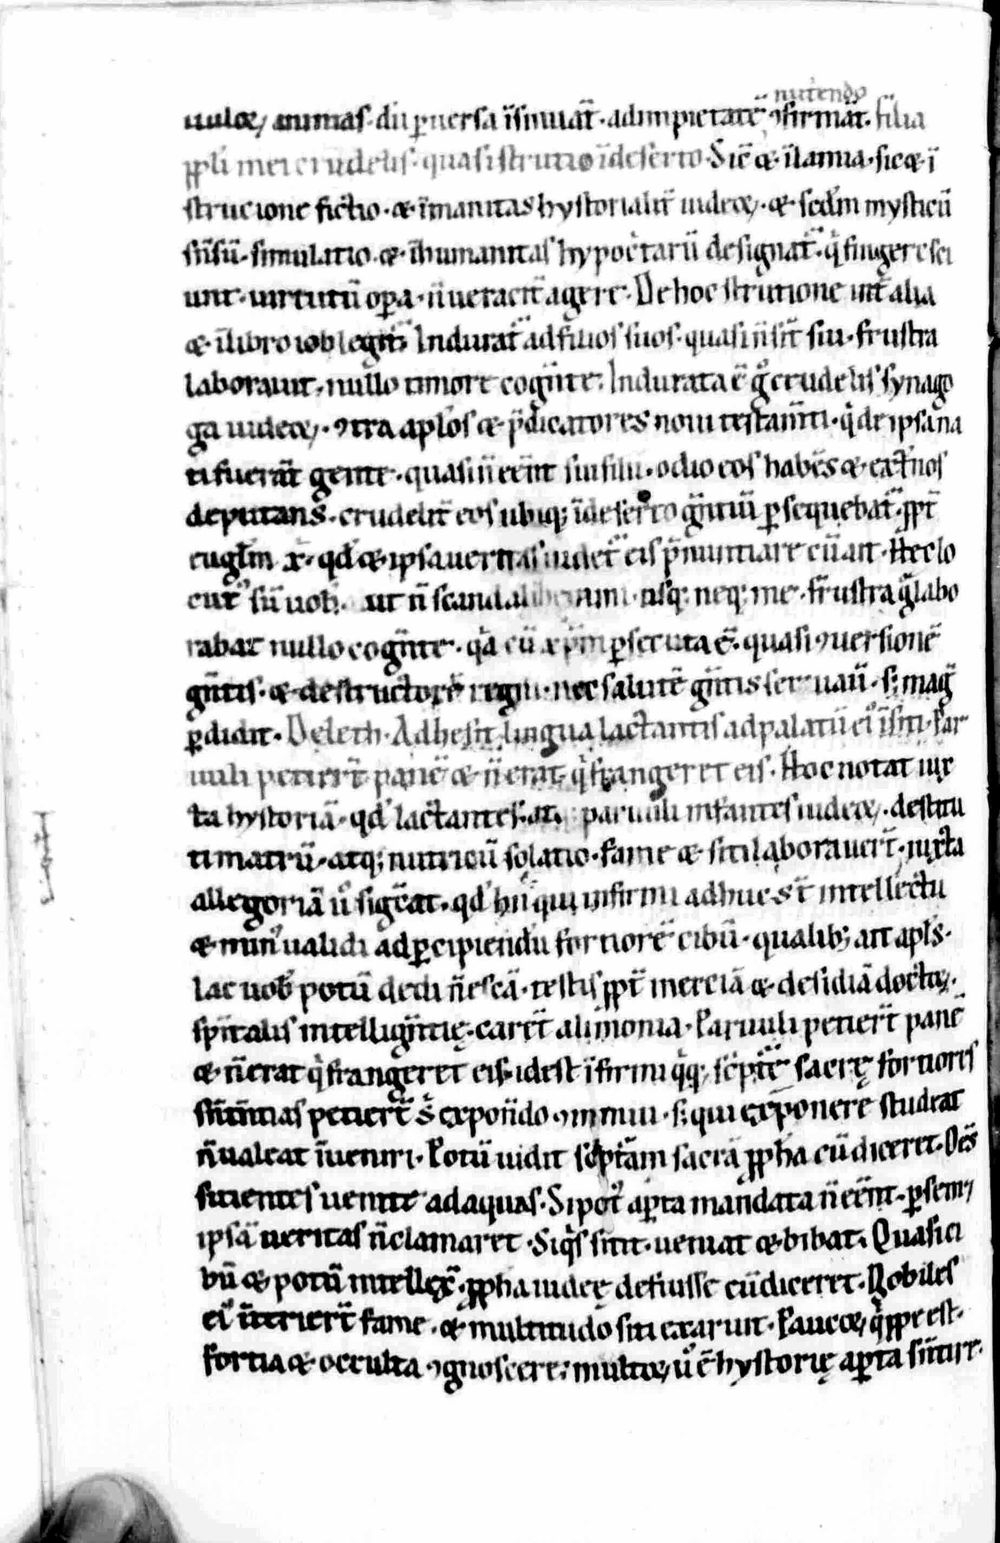 nutriendo
uulę animas· dū ꝑuersa īsinuāt· ad impietatē ꝯfirmāt. filia
ṗpli mei crudelis· quasi strutio ī deserto· Sic̄ & ī lamia· sic & ī
strucione fictio· & īmanitas hystorialit̄ iudeę· & scd̄m mysticū
sn̄sū· simulatio & īhumanitas hypoc̄tarū designat̄· q̇ fingere sci
unt· uirtutū oꝑa· n̄ ueracit̄ agere· De hoc strutione int̄ alia
& ī libro iob legit̄· Indurat̄ ad filios suos· quasi n̄ sīt sui· frustra
laborauit· nullo timore cogn̄te· Indurata ē g° crudelis synago
ga iudeę· ꝯtra apl̄os & p̄dicatores noui testam̄ti· q̇ de ipsa na
ti fuerāt gente· quasi n̄ een̄t sui filii· odio eos habēs & ext̄nos
deputans· crudelit̄ eos ubiq; ī deserto gn̄tiū ꝑsequebat̄· ꝓpt̄
eug̅lm x̄· qd̄ & ipsa ueritas uidet̄ eis p̄nuntiare cū ait· Hec lo
cut᷒ sū uob̄ ut n̄ scandali usq; neq; me· frustra g° labo
rabat nullo cogn̄te· q̇a cū xp̄m ꝑsecuta ē· quasi ꝯuersionē
gn̄tis· & destructorē regni· nec salutē gn̄tis seruauit· s; mag̊
ꝑdidit· Deleth· Adhesit lingua lactantis ad palatū ei᷒ ī siti· Par
uuli petiert̄ panē & n̄ erat q̇ frangeret eis· Hoc notat iux
ta hystoriā· qd̄ lactantes at paruuli infantes iudeę· destitu
ti matrū· atq; nutricū solatio· fame & siti laborauert̄· iuxta
allegoriā ū sigc̄at· qd̄ hii qui infirmi adhuc st̄ intellectu
& min᷒ ualidi ad ꝑcipiendū fortiorē cibū· qualib; ait apl̄s·
lac uob̄ potū dedi n̄ escā· testis ꝓpt̄ inerciā & desidiā doctoꝝ·
sp̄italis intellign̄tię· caret̄ alimonia· Paruuli petiert̄ panē
& n̄ erat q̇ frangeret eis· idest īfirmi q̇q; sc̄ptr̄ę sacrę fortiores
sn̄t̄ntias petiert̄ exponēdo ꝯminui· s; qui exponere studeat
n̄ ualeat īueniri· Potū uidit sc̄pt̄am sacrā ꝓpha cū diceret· Oēs
sitientes uenite ad aquas· Si pot᷒ aꝑta mandata n̄ een̄t· ꝑ semet
ipsā ueritas n̄ clamaret· Siq̇s sitit· ueniat & bibat. Quasi ci
bū & potū intellex̄· ꝓpha iudeę defuisse cū diceret· Nobiles
ei᷒ īt̄riert̄ fame· & multitudo siti exaruit· Paucoꝝ q̇ppe est·
fortia & occulta ꝯgnoscere; multoꝝ ū ē hystorię aꝑta sn̄tire·